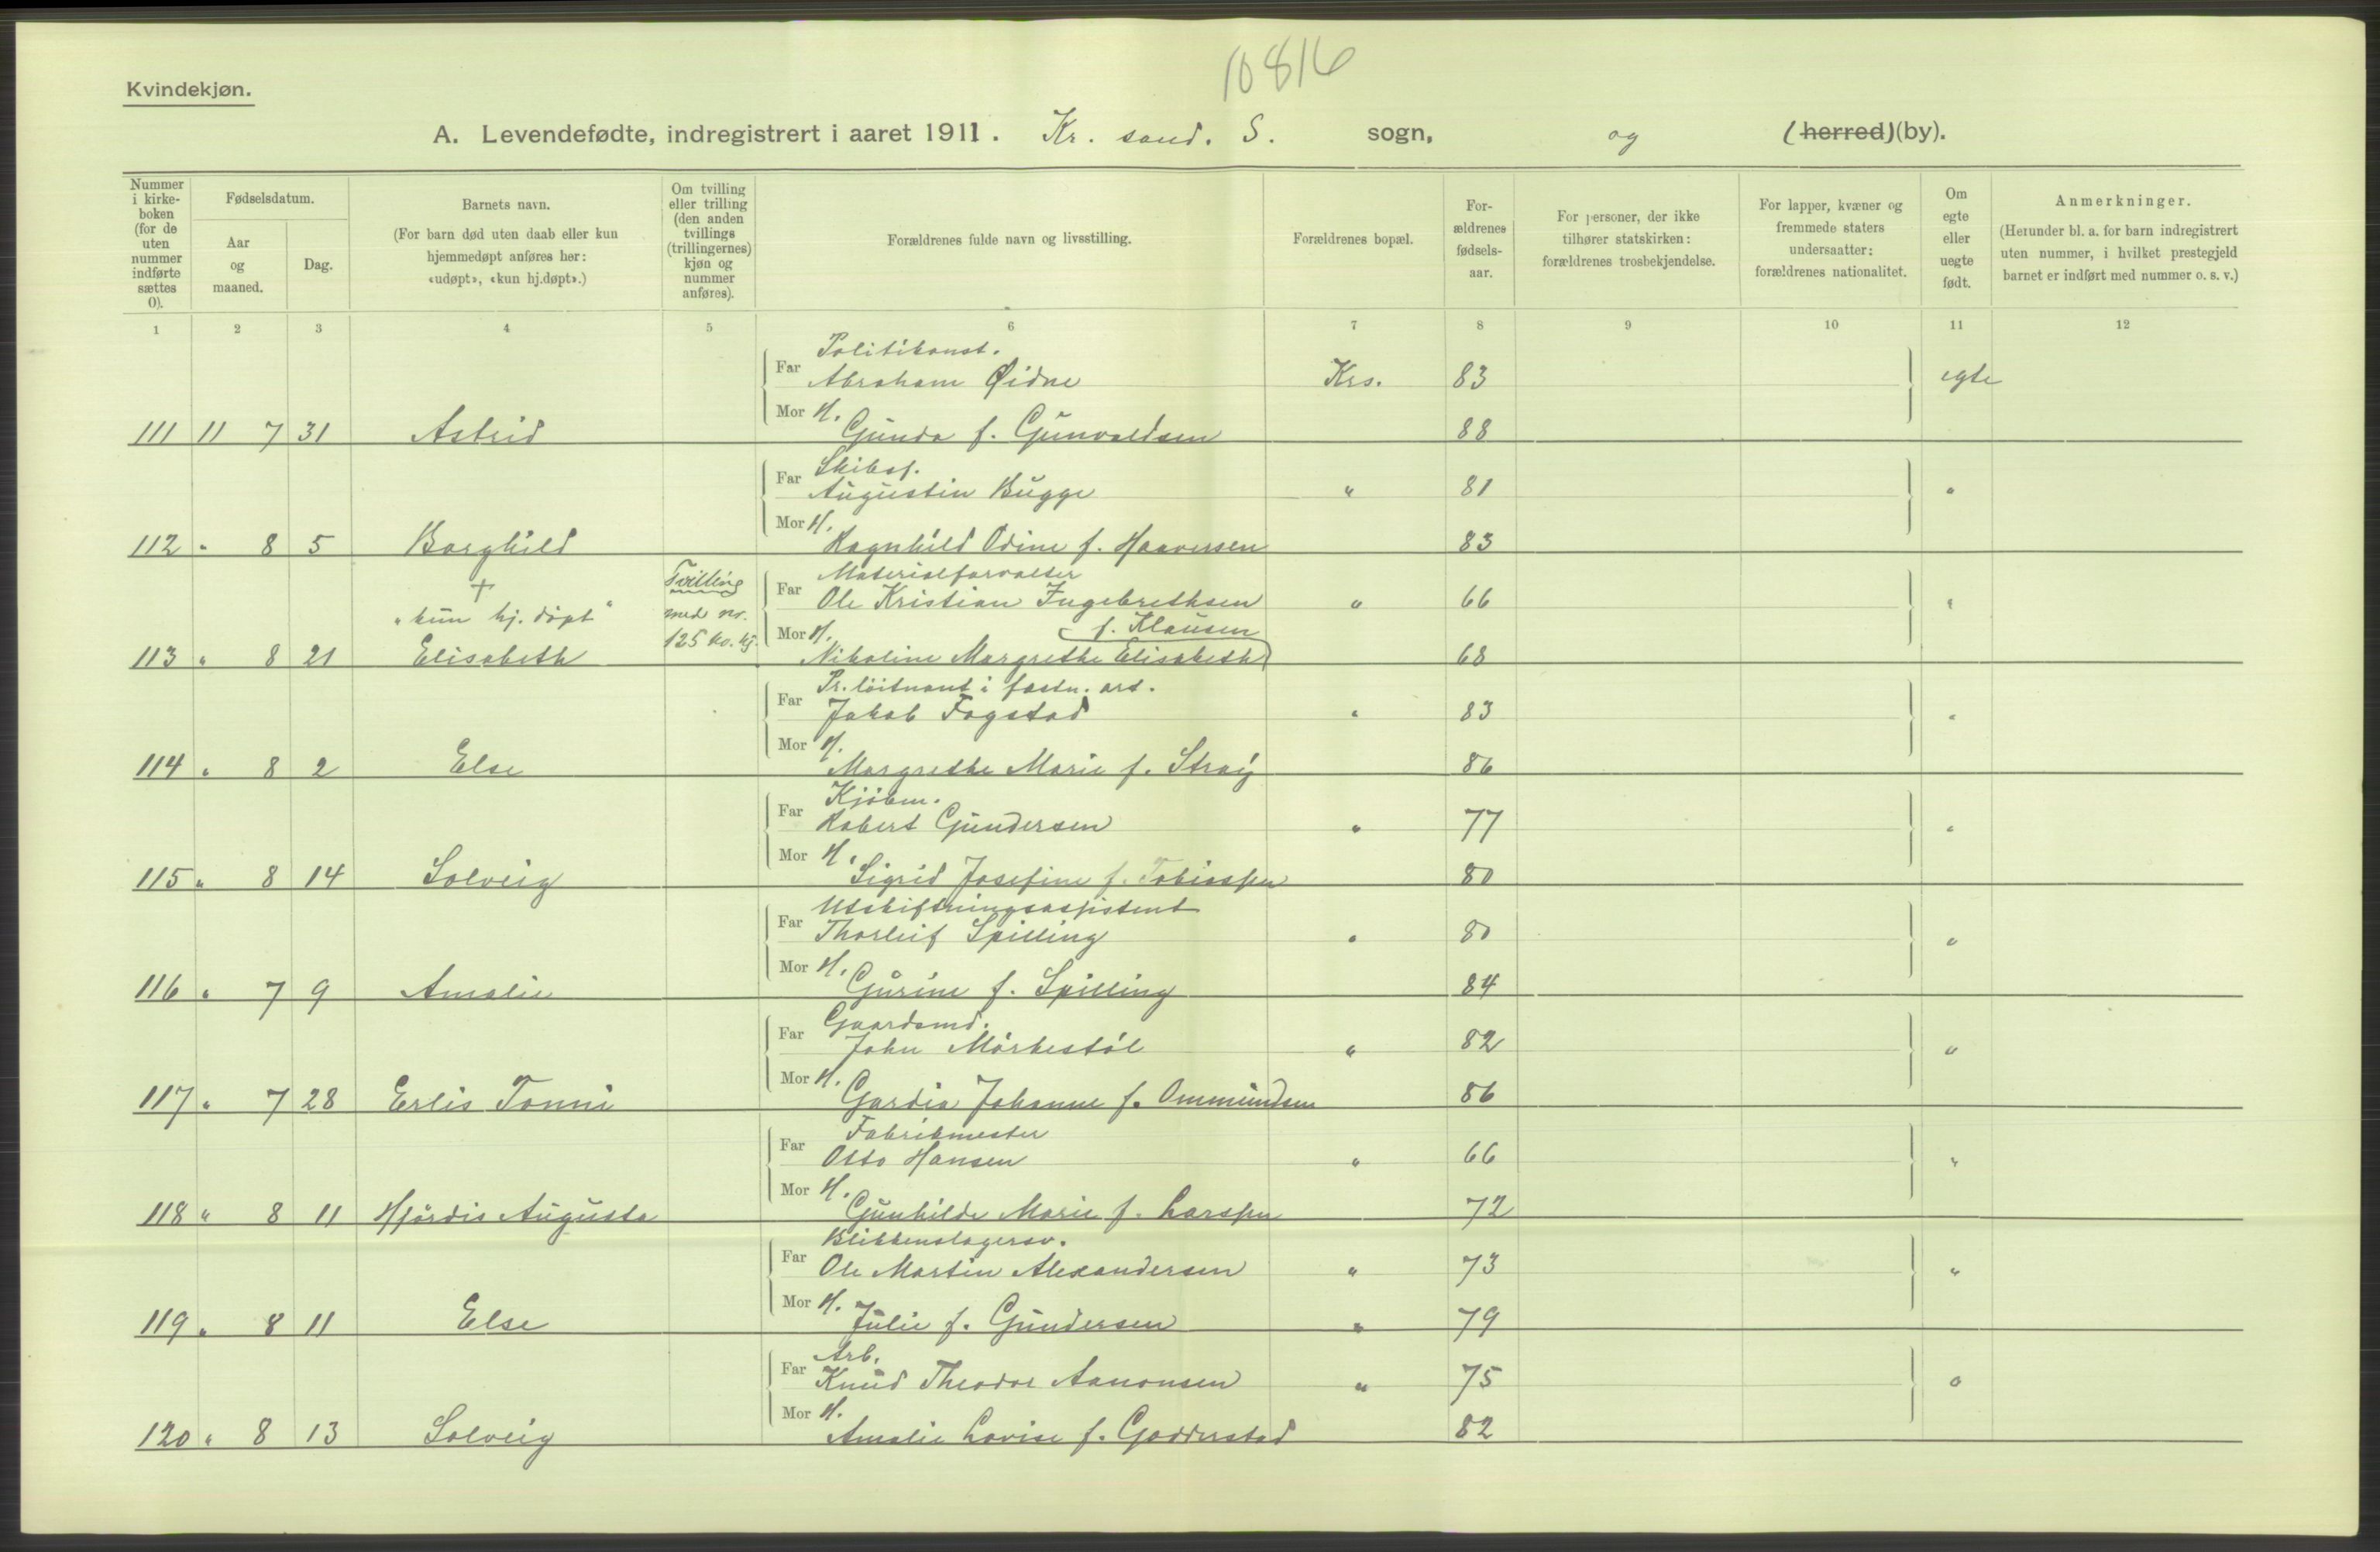 10816
Kvindekjøn.
A. Levendefødte, indregistrert i aaret 1911. Kr. sand. S. sogn, og (herred)(by).
Nummer i kirke-boken (for de uten nummer indførte sættes 0).
Fødselsdatum.
Aar og maaned.
Dag.
Barnets navn.
(For barn død uten daab eller kun hjemmedøpt anføres her: «udøpt», «kun hj.døpt».)
Om tvilling eller trilling (den anden tvillings (trillingernes) kjøn og nummer anføres).
Forældrenes fulde navn og livsstilling.
Forældrenes bopæl.
For-ældrenes fødsels-aar.
For personer, der ikke tilhører statskirken: forældrenes trosbekjendelse.
For lapper, kvæner og fremmede staters undersaatter: forældrenes nationalitet.
Om egte eller uegte født.
Anmerkninger.
(Herunder bl. a. for barn indregistrert uten nummer, i hvilket prestegjeld barnet er indført med nummer o. s. v.)
1 2 3 4 5 6 7 8 9 10 11 12
Politikonst.
Far Abraham Øidne Krs. 83 egte
111 11 7 31 Astrid Mor H. Gunda f. Gunvaldsen 88
Skibsf.
Far Augustin Bugge " 81 "
112 " 8 5 Borghild Mor H. Ragnhild Odine f. Haaversen 83
Materialforvalter
+ Tvilling
Far Ole Kristian Ingebrethsen " 66 "
"kun hj. døpt" med nr. 125 
Mor H. f. Klausen
113 " 8 21 Elisabeth Nikoline Margrethe Elisabeth 68
Pr. løitnant i fæstn. art.
Far Jakob Fogstad " 83 "
114 " 8 2 Else Mor H. Margrethe Marie f. Stray 86
Kjøbm.
Far Robert Gundersen " 77 "
115 " 8 14 Solveig Mor H. Sigrid Josefine f. Tobiassen 80
Utskiftningsassistent
Far Thorleif Spilling " 80 "
116 " 7 9 Amalie Mor H. Gurine f. Spilling 84
Gaardsmd.
Far John Mörkestöl " 82 "
117 " 7 28 Erlis Tonni Mor H. Gardia Johanne f. Ommundsen 86
Fabrikmester
Far Otto Hansen " 66 "
118 " 8 11 Hjördis Augusta Mor H. Gunhilde Marie f. Larssen 72
Blikkenslagersv.
Far Ole Martin Alexandersen " 73 "
119 " 8 11 Else Mor H. Julie f. Gundersen " 79
Arb.
Far Knud Theodor Aanonsen " 75 "
120 " 8 13 Solveig Mor H. Amalie Lovise f. Godderstad 82